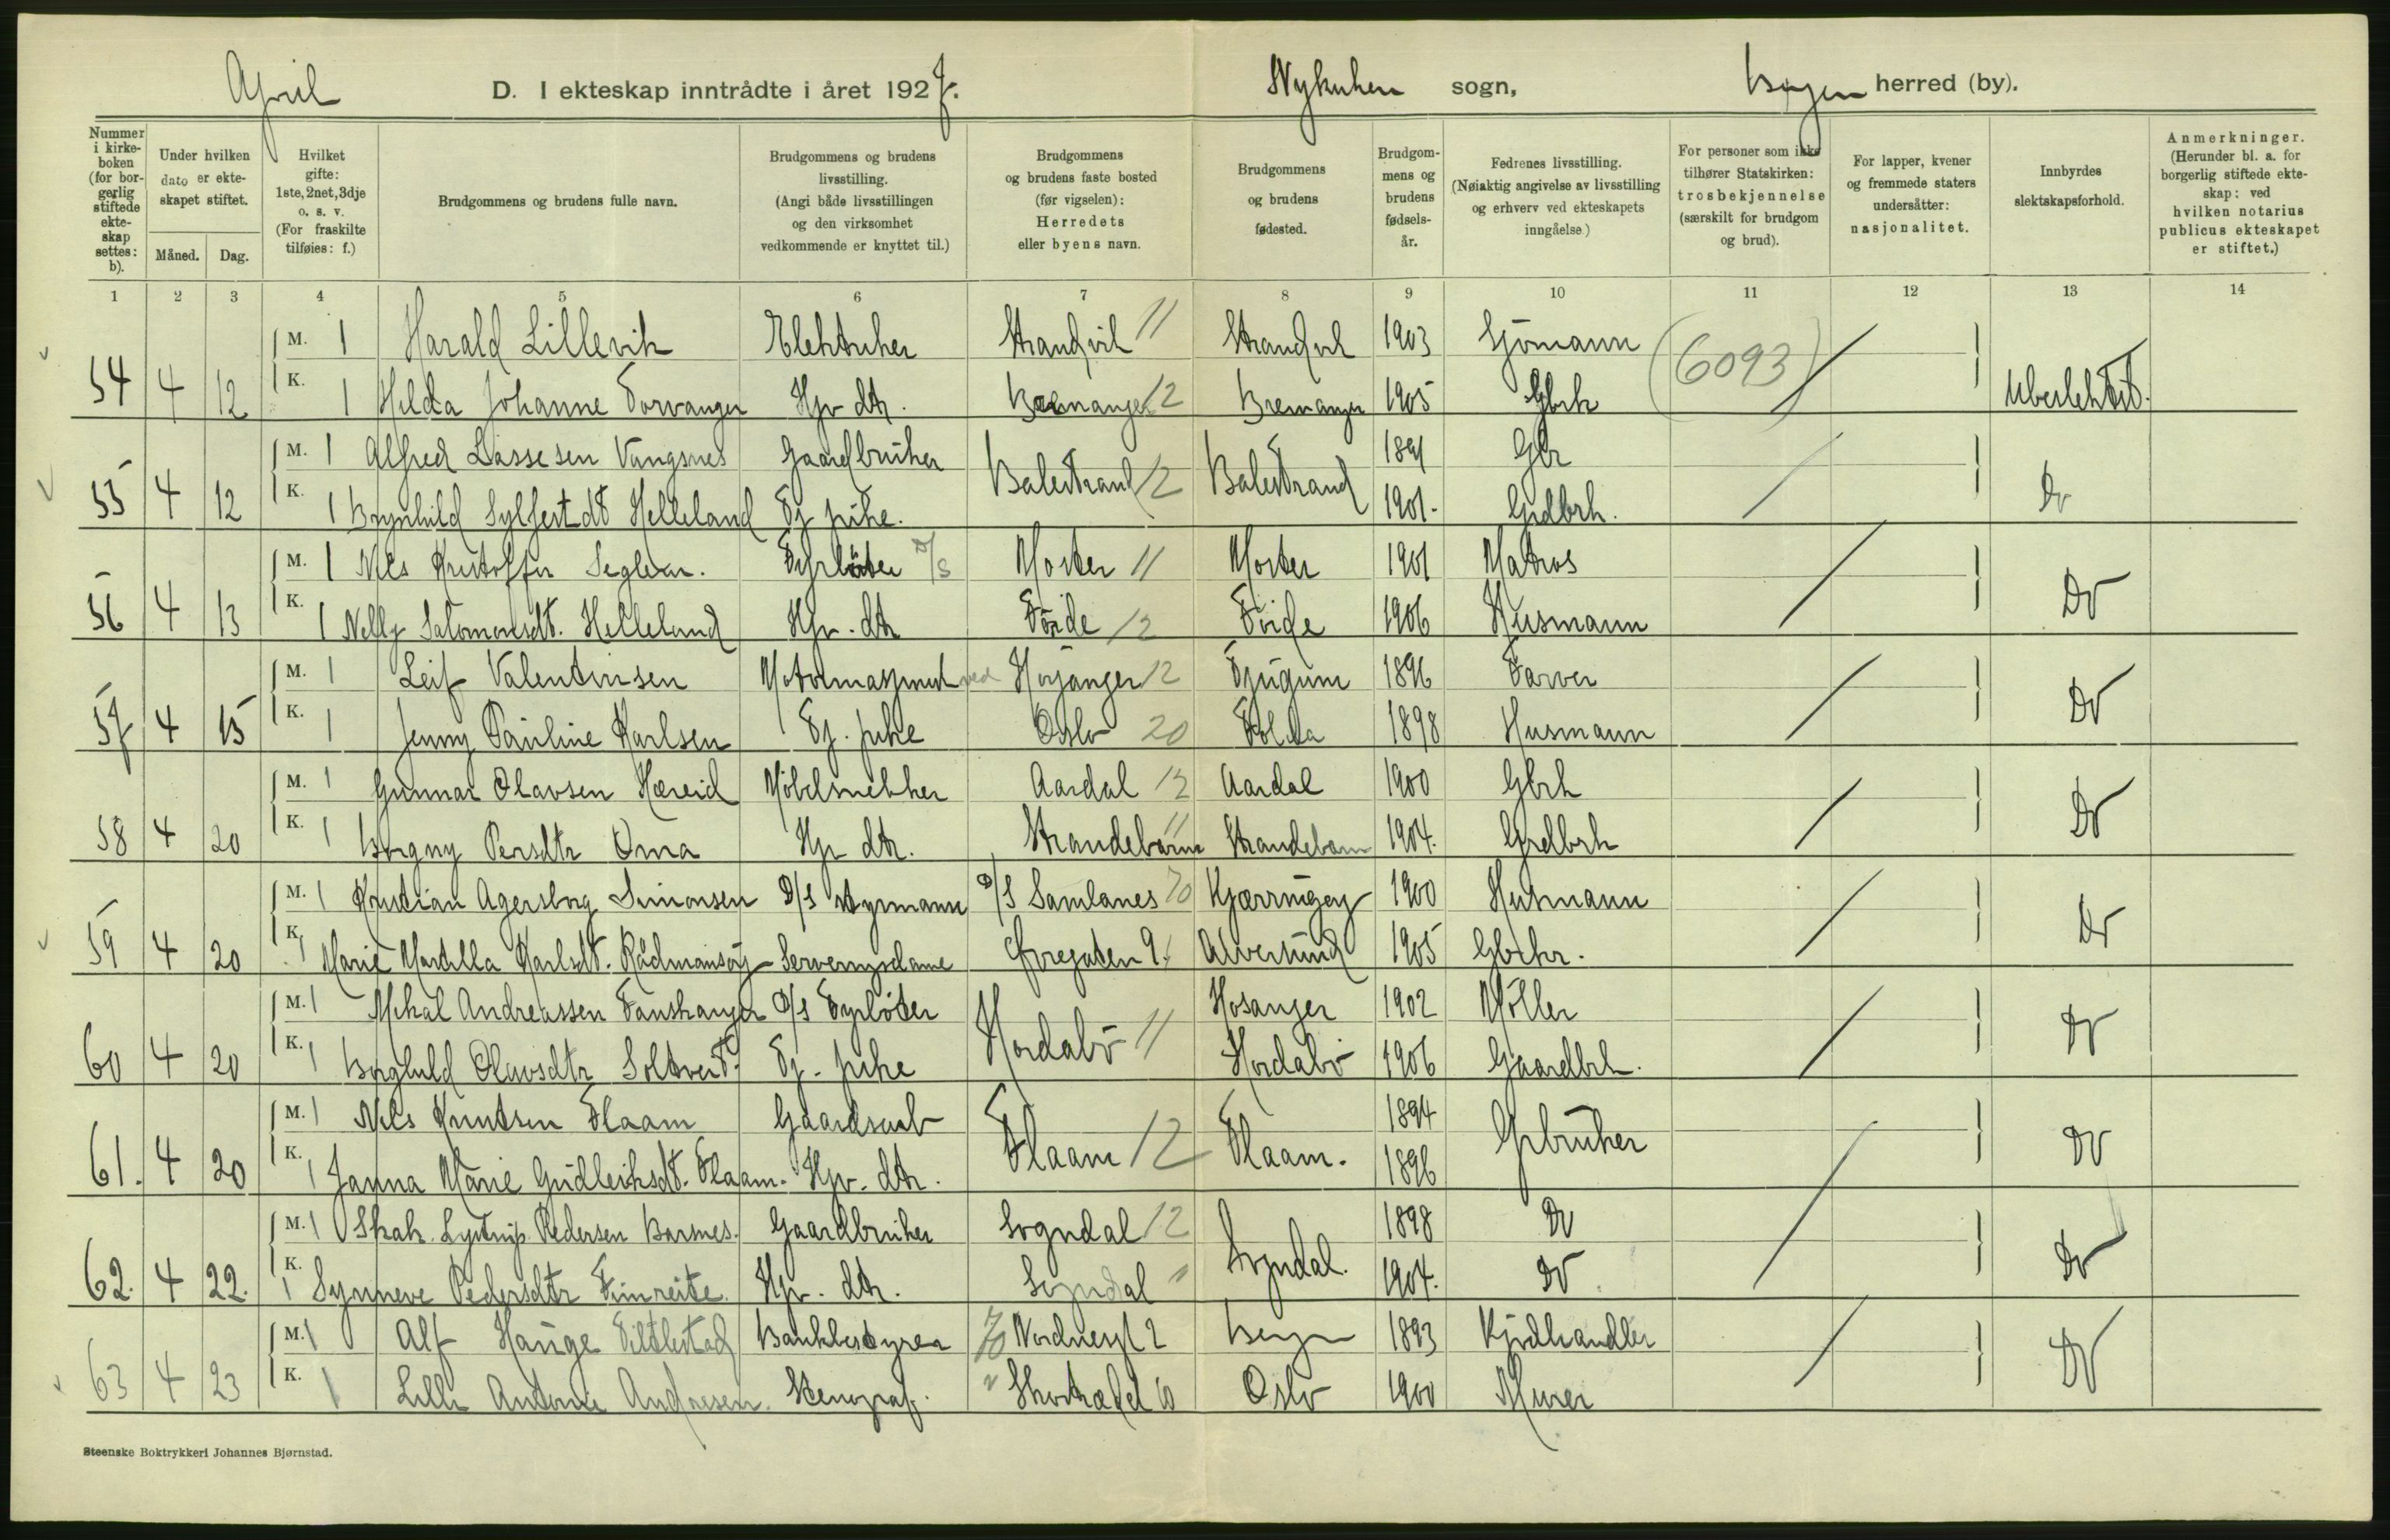 April D. I ekteskap inntrådte i året 1927. Nykirken sogn, Bergen herred (by).
Nummer i kirkeboken (for borgerlig stiftede ekteskap settes: b).
Under hvilken dato er ekteskapet stiftet.
Måned. Dag.
Hvilket gifte: 1ste, 2net, 3dje o. s. v. (For fraskilte tilføies: f.)
Brudgommens og brudens fulle navn.
Brudgommens og brudens livsstilling. (Angi både livsstillingen og den virksomhet vedkommende er knyttet til.)
Brudgommens og brudens faste bosted (før vigselen): Herredets eller byens navn.
Brudgommens og brudens fødested.
Brudgommens og brudens fødselsår.
Fedrenes livsstilling. (Nøiaktig angivelse av livsstilling og erhverv ved ekteskapets inngåelse)
For personer som ikke tilhører Statskirken: trosbekjennelse (særskilt for brudgom og brud).
For lapper, kvener og fremmede staters undersåtter: nasjonalitet.
Innbyrdes slektskapsforhold.
Anmerkninger. (Herunder bl. a. for borgerlig stiftede ekteskap: ved hvilken notarius publicus ekteskapet er stiftet.)
1 2 3 4 5 6 7 8 9 10 11 12 13 14
M. 1 Harald Lillevik Elektriker Strandvik 11 Strandvik 1903 Sjömann (6093)
54 4 12 K. 1 Hilda Johanne Torvanger Hjv dtr. Bremanger 12 Bremanger 1905 Gbrk Ubeslektet.
M. 1 Alfred Lassesen Vangsnes Gaardbruker Balestrand 12 Balestrand 1891 Gbr
55 4 12 K. 1 Brynhild Sylfestdt Helleland Tj pike. 1901. Grdbrk. Do
M. 1 Nils Kristoffer Seglem. Fyrböter D/S Moster 11 Moster 1901 Matros
56 4 13 K. 1 Nelly Salomonsdt. Helleland Hjv. dtr Förde 12 Förde 1906 Husmann Do
M. 1 Leif Valentinsen Motormaskinist Höyanger 12 Tjugum 1896 Farver
57 4 15 K. 1 Jenny Pauline Karlsen Tj. pike Oslo 20 Folda 1898 Husmann Do
M. 1 Gunnar Olavsen Hæreid Möbelsnekker Aardal 12 Aardal 1900 Gbrk
58 4 20 K. 1 Borgny Persdtr Oma Hjv dtr. Strandebarm 11 Strandebarm 1904. Grdbrk Do
M. 1 Kristian Agersborg Simonsen D/S styrmann D/S Samlanes 70 Kjærringöy 1900 Husmann
59 4 20 K. 1 Marie Martilla Karlsdt. Rådmansöy Serveringsdame Övregaten 9. Alversund 1905 Gbrkr. Do
M. 1 Mikal Andreassen Fauskanger D/S Fyrböter Hordabö 11 Hosanger 1902 Möller
60 4 20 K. 1 Borghild Olavsdtr Soltveit. Tj. pike Hordabö 1906 Gaardbrk. Do
M. 1 Nils Knutsen Flaam Gaardsarb Flaam 12 Flaam. 1894 Gbruker
61. 4 20 K. 1 Janna Marie Gudleiksdt. Flaam. Hjv. dtr. 1896 Do
M. 1 Skak Lystrup Pedersen Barsnes. Gaardbruker Sogndal 12 Sogndal. 1898 Do
62. 4 22. K. 1 Synneve Pedersdtr Fimreite. Hjv. dtr. Sogndal " 1904. Do Do
M. 1 Alf Hauge Bankbestyrer 70 Nordnesgt 2 Bergen 1893 Kjödhandler
63 4 23 K. 1 Lilly Antonie Andresen. Stenograf. " 10 Oslo 1900 Murer Do
Steenske Boktrykkeri Johannes Bjørnstad.